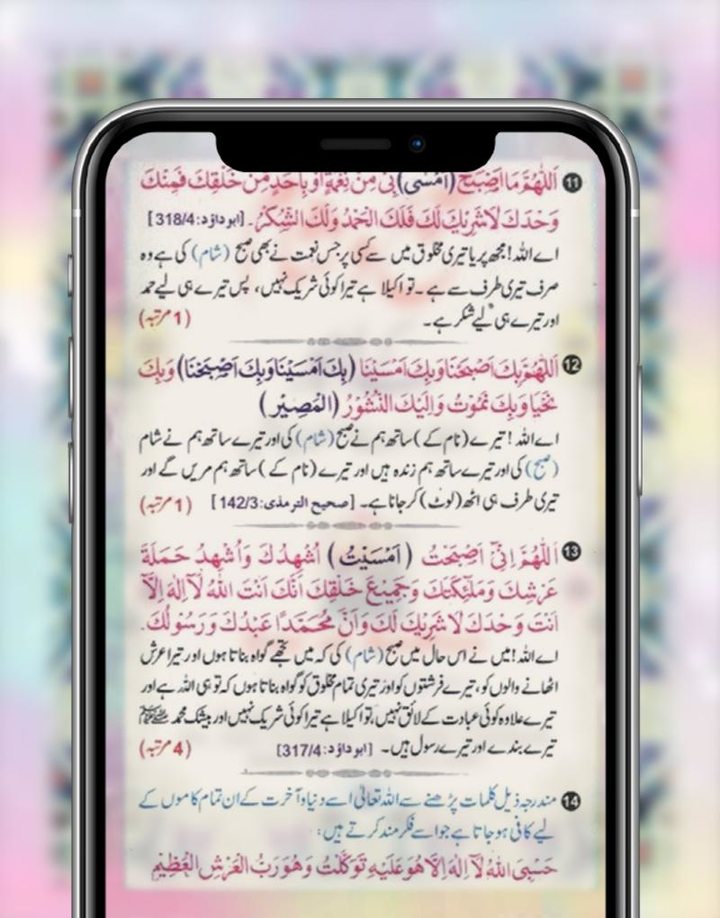 ⓫ اَللّٰهُمَّ مَا اَصْبَحَ (اَمْسٰى) بِىْ مِنْ نِعْمَةٍ اَوْ بِاَحَدٍ مِنْ خَلْقِكَ فَمِنْكَ
وَحْدَكَ لَا شَرِيْكَ لَكَ فَلَكَ الْحَمْدُ وَلَكَ الشُّكْرُ۔ [ابوداؤد:318/4]
اے اللہ! مجھ پر یا تیری مخلوق میں سے کسی پر جس نعمت نے بھی صبح (شام) کی ہے وہ
صرف تیری طرف سے ہے۔ تو اکیلا ہے تیرا کوئی شریک نہیں، پس تیرے ہی لیے حمد
اور تیرے ہی لیے شکر ہے۔ (1 مرتبہ)
⓬ اَللّٰهُمَّ بِكَ اَصْبَحْنَا وَبِكَ اَمْسَيْنَا (بِكَ اَمْسَيْنَا وَبِكَ اَصْبَحْنَا) وَبِكَ
نَحْيَا وَبِكَ نَمُوْتُ وَاِلَيْكَ النُّشُوْرُ (الْمَصِيْرُ)
اے اللہ! تیرے (نام کے) ساتھ ہم نے صبح (شام) کی اور تیرے ساتھ ہم نے شام
(صبح) کی اور تیرے ساتھ ہم زندہ ہیں اور تیرے (نام کے) ساتھ ہم مریں گے اور
تیری طرف ہی اٹھ (لوٹ) کر جانا ہے۔ [صحیح الترمذی:142/3] (1 مرتبہ)
⓭ اَللّٰهُمَّ اِنِّىْ اَصْبَحْتُ (اَمْسَيْتُ) اُشْهِدُكَ وَاُشْهِدُ حَمَلَةَ
عَرْشِكَ وَمَلٰٓئِكَتَكَ وَجَمِيْعَ خَلْقِكَ اَنَّكَ اَنْتَ اللّٰهُ لَآ اِلٰهَ اِلَّآ
اَنْتَ وَحْدَكَ لَا شَرِيْكَ لَكَ وَاَنَّ مُحَمَّدًا عَبْدُكَ وَرَسُوْلُكَ۔
اے اللہ! میں نے اس حال میں صبح (شام) کی کہ میں تجھے گواہ بناتا ہوں اور تیرا عرش
اٹھانے والوں کو، تیرے فرشتوں کو اور تیری تمام مخلوق کو گواہ بناتا ہوں کہ تو ہی اللہ ہے اور
تیرے علاوہ کوئی عبادت کے لائق نہیں، تو اکیلا ہے تیرا کوئی شریک نہیں اور بیشک محمد ﷺ
تیرے بندے اور تیرے رسول ہیں۔ [ابوداؤد:317/4] (4 مرتبہ)
⓮ مندرجہ ذیل کلمات پڑھنے سے اللہ تعالیٰ اسے دنیا و آخرت کے ان تمام کاموں کے
لیے کافی ہو جاتا ہے جو اسے فکر مند کرتے ہیں:
حَسْبِىَ اللّٰهُ لَآ اِلٰهَ اِلَّا هُوَ عَلَيْهِ تَوَكَّلْتُ وَهُوَ رَبُّ الْعَرْشِ الْعَظِيْمِ